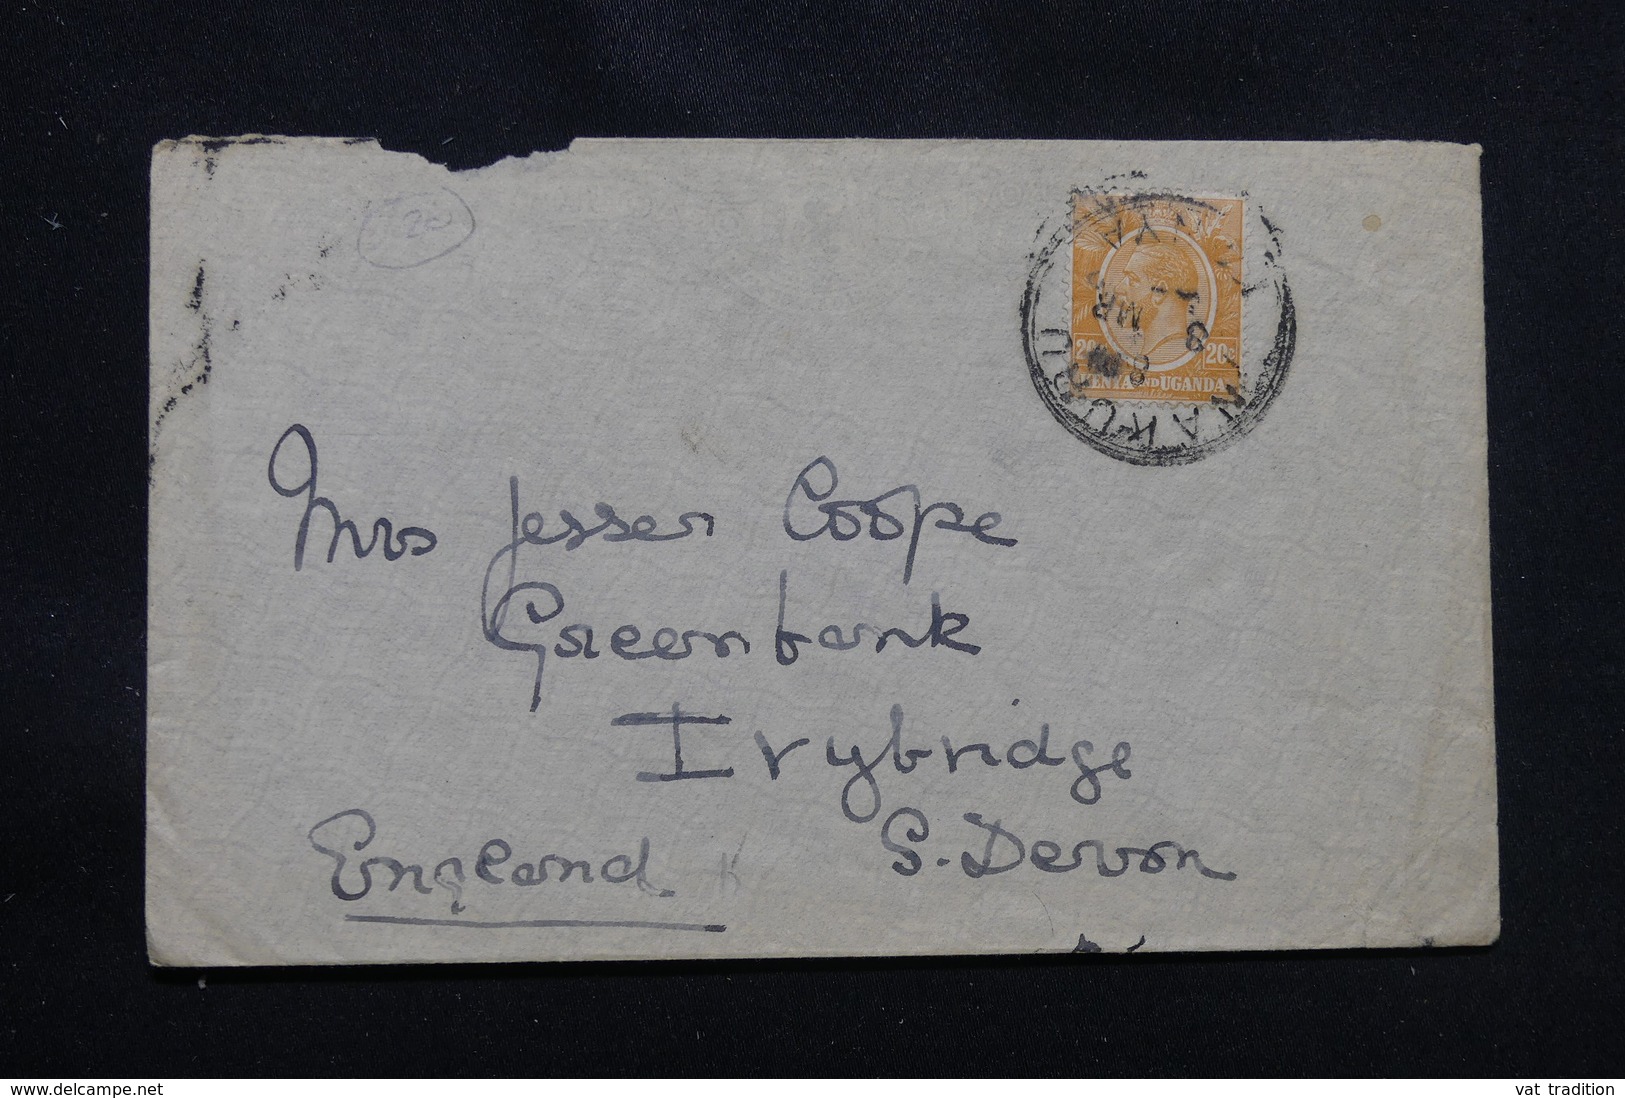 20
KENYA AND UGANDA
20c 20c
NAKURU
KENYA
MR
Mrs Jesser Coope
Greenbank
Ivybridge
S. Devon
England
www.delcampe.net
vat tradition